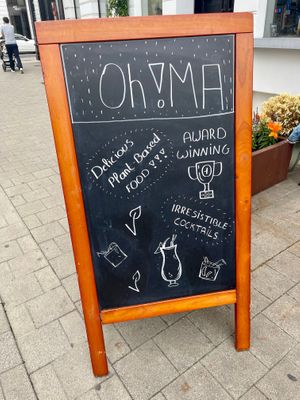 Oh!MA
Delicious
Plant Based
FOOD!!!
AWARD
WINNING
1
IRRESISTIBLE
COCKTAILS